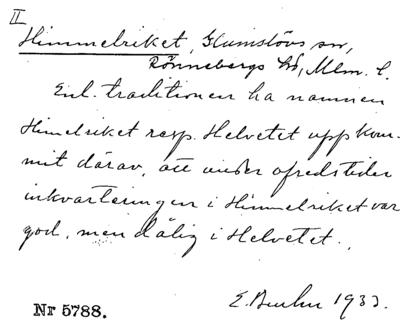 II
Himmelriket, Glumslövs sn,
Rönnebergs hd, Mlm. l.
Enl. traditionen ha namnen
Himelriket resp. Helvetet uppkom-
mit därav, att under ofredstider
inkvarteringen i Himmelriket var
god, men dålig i Helvetet.
E. 1933.
Nr 5788.